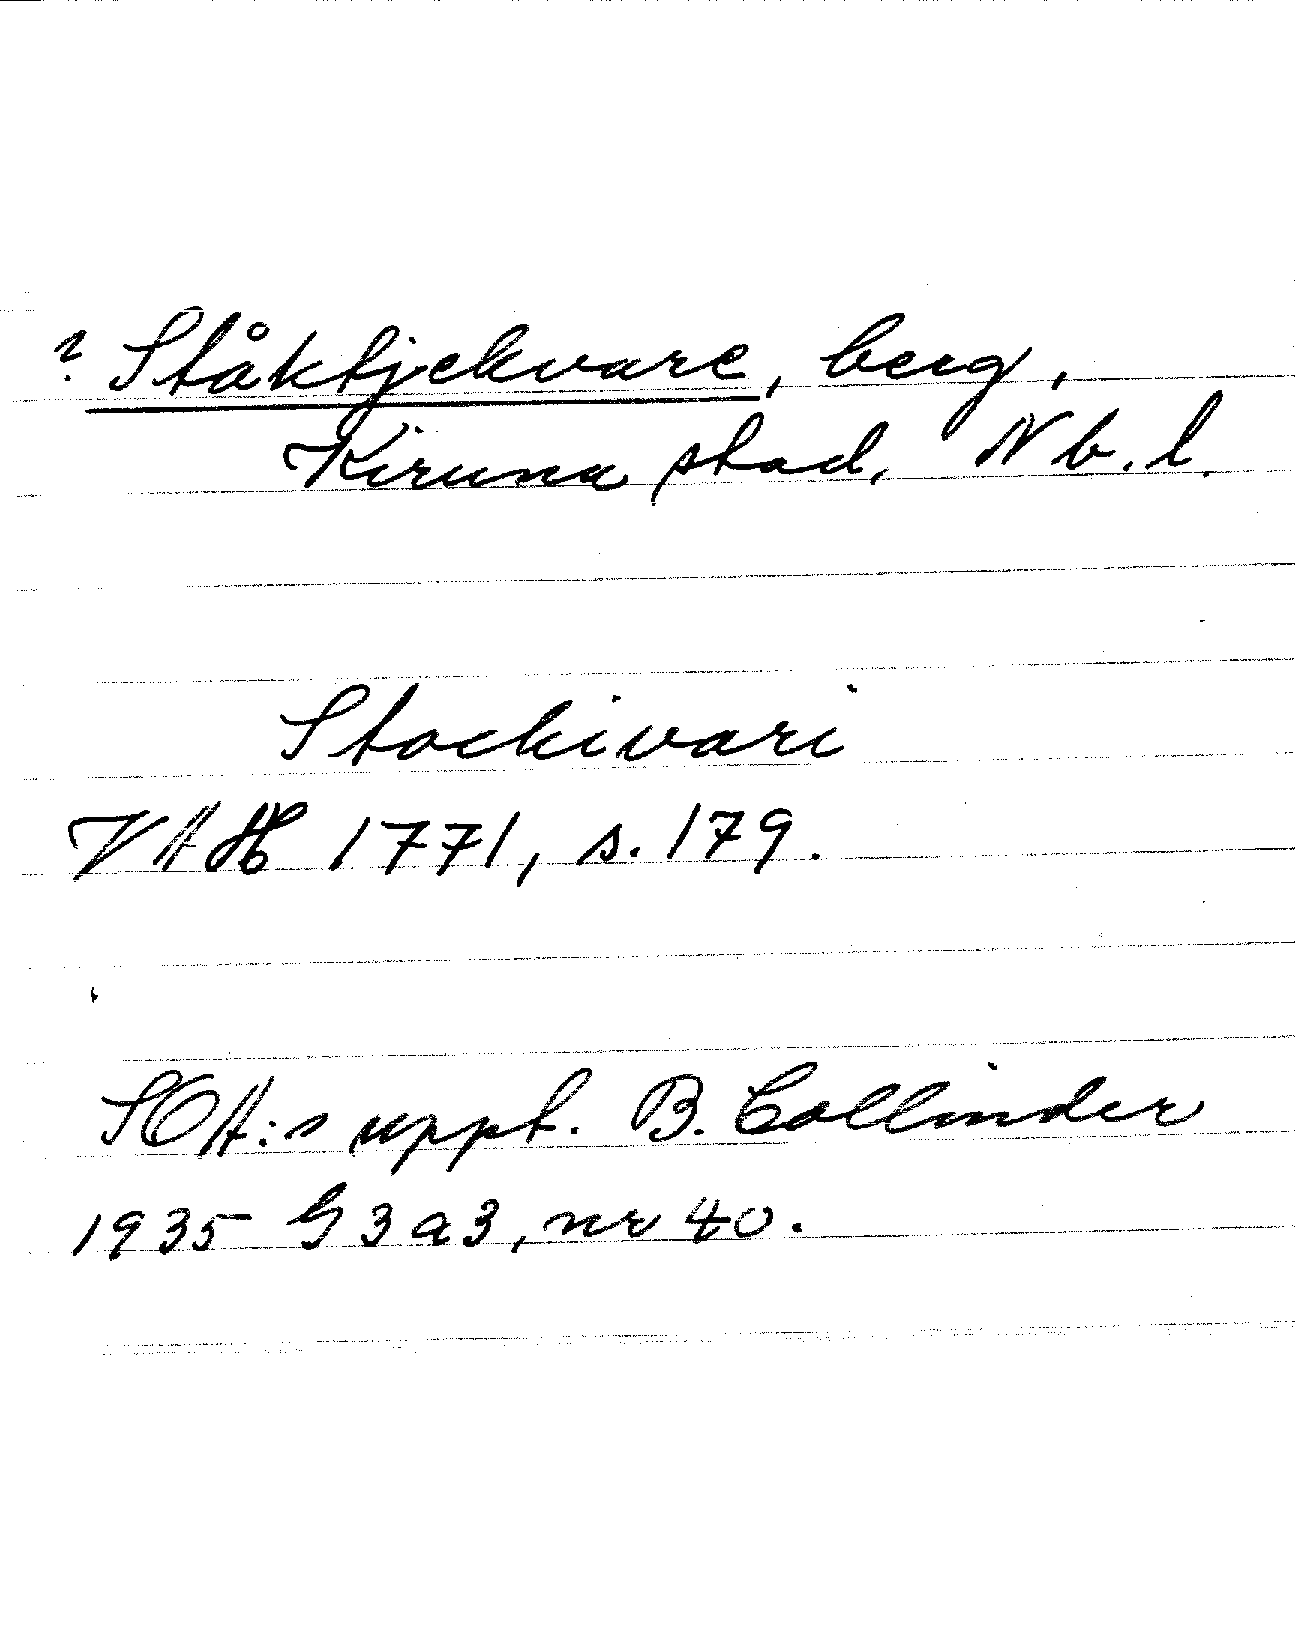 ? Ståktjekvare, berg,
Kiruna stad. Nb. l.
Stockivari
VAH 1771, s. 179.
SOA:s uppt. B. Collinder
1935 G 3 a 3, nr 40.